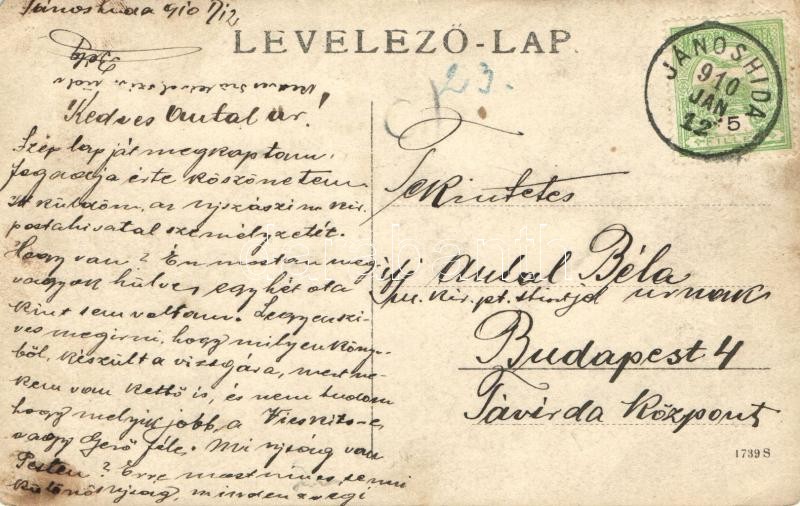 Jánoshida 910 I/12
LEVELEZŐ-LAP
23.
JÁNOSHIDA
910
JAN
12 5
FILLÉR
Kedves Antal úr!
Szép lapját megkaptam,
fogadja érte köszönetem.
Itt küldöm, az ujszászi m. kir.
postahivatal személyzetét.
Hogy van? Én mostan meg
vagyok hülve, egy hét óta
kint sem voltam. Legyen szi-
ves megirni, hogy milyen köny-
ből készült a vizsgára, mert ne-
kem van kettő is, és nem tudom
hogy melyik jobb, a
vagy Gerő féle. Mi ujság van
Pesten? Erre most nincs semmi
különös ujság, minden a régi
Tekintetes
ifj Antal Béla
m. kir. pt. urnak
Budapest 4
Távirda Központ
1739 S